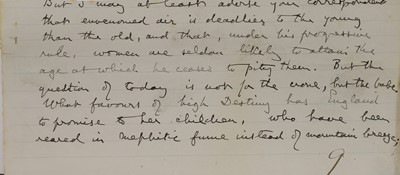 But I may at least advise your correspondent
that envenomed air is deadlier to the young
than the old, and that, under his progressive
rule, women are seldom likely to attain the
age at which he ceases to pity them. But the
question of today is not for the crone, but the babe.
What favours of high Destiny has England
to promise to her children, who have been
reared in mephitic fume instead of mountain breeze,
9